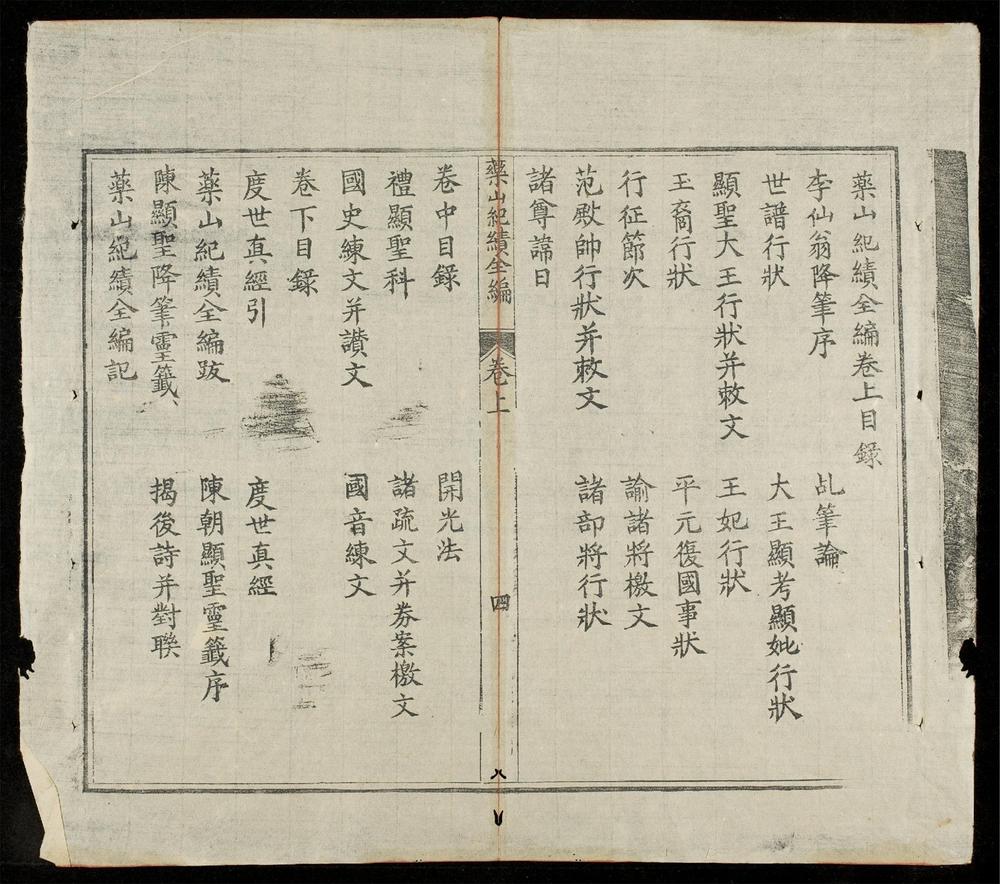 藥山紀績全編卷上目録
李仙翁降筆序　乩筆論
世譜行狀　大王顯考顯妣行狀
顯聖大王行狀并敕文　王妃行狀
玉裔行狀　平元復國事狀
行征節次　諭諸將檄文
范殿帥行狀并敕文　諸部將行狀
諸尊諱日
藥山紀績全編　卷上　四
卷中目録　開光法
禮顯聖科　諸疏文并券案檄文
國史練文并讃文　國音練文
卷下目録
度世真經引　度世真經
藥山紀績全編跋　陳朝顯聖靈籤序
陳顯聖降筆靈籤　揭後詩并對聯
藥山紀績全編記